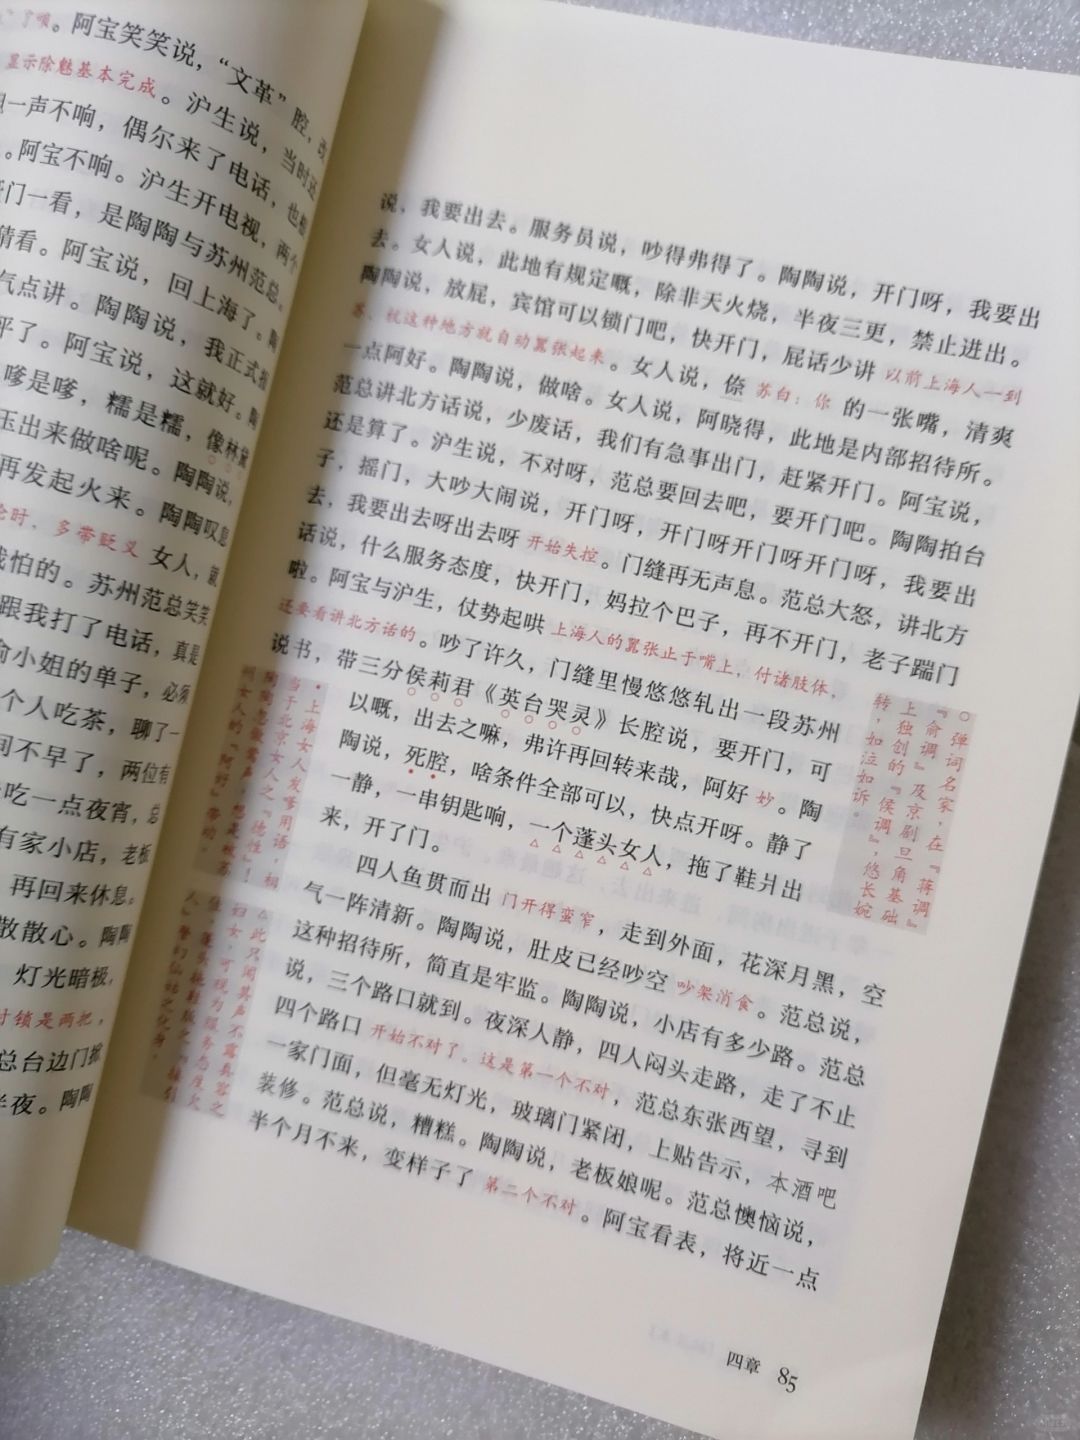 了嗄。阿宝笑笑说，“文革”腔，改
显示除魅基本完成。沪生说，当时还
一声不响，偶尔来了电话，也
。阿宝不响。沪生开电视，两个
门一看，是陶陶与苏州范总。
猜看。阿宝说，回上海了。陶
气点讲。陶陶说，我正式
平了。阿宝说，这就好。陶
嗲是嗲，糯是糯，像林黛
玉出来做啥呢。陶陶说，
再发起火来。陶陶叹息
时，多带贬义 女人，就
我怕的。苏州范总笑笑
跟我打了电话，真是
俞小姐的单子，必须
个人吃茶，聊了一
间不早了，两位有
吃一点夜宵，总
有家小店，老板
再回来休息。
散散心。陶陶
灯光暗极，
时锁是两把，
总台边门掀
半夜。陶陶
• 上海女人发嗲用语，相
当于北京女人之『德性』！
陶陶忽做莺声，想是被苏
州女人的『阿好』带动。
△ 此只闻其声不露真容之
妇女，可视为服务态度欠
佳、蓬头拖鞋版之『接引
人』警幻仙姑之化身。
说，我要出去。服务员说，吵得弗得了。陶陶说，开门呀，我要出
去。女人说，此地有规定嘅，除非天火烧，半夜三更，禁止进出。
陶陶说，放屁，宾馆可以锁门吧，快开门，屁话少讲 以前上海人一到
苏、杭这种地方就自动嚣张起来。女人说，倷 苏白：你 的一张嘴，清爽
一点阿好。陶陶说，做啥。女人说，阿晓得，此地是内部招待所。
范总讲北方话说，少废话，我们有急事出门，赶紧开门。阿宝说，
还是算了。沪生说，不对呀，范总要回去吧，要开门吧。陶陶拍台
子，摇门，大吵大闹说，开门呀，开门呀开门呀开门呀，我要出
去，我要出去呀出去呀 开始失控。门缝再无声息。范总大怒，讲北方
话说，什么服务态度，快开门，妈拉个巴子，再不开门，老子踹门
啦。阿宝与沪生，仗势起哄 上海人的嚣张止于嘴上，付诸肢体，
还要看讲北方话的。吵了许久，门缝里慢悠悠轧出一段苏州
说书，带三分侯莉君《英台哭灵》长腔说，要开门，可
以嘅，出去之嘛，弗许再回转来哉，阿好 妙。陶
陶说，死腔，啥条件全部可以，快点开呀。静了
一静，一串钥匙响，一个蓬头女人，拖了鞋爿出
来，开了门。
○ 弹词名家，在『蒋调』
『俞调』及京剧旦角基础
上独创的『侯调』，悠长婉
转，如泣如诉。
四人鱼贯而出 门开得蛮窄，走到外面，花深月黑，空
气一阵清新。陶陶说，肚皮已经吵空 吵架消食。范总说，
这种招待所，简直是牢监。陶陶说，小店有多少路。范总
说，三个路口就到。夜深人静，四人闷头走路，走了不止
四个路口 开始不对了。这是第一个不对，范总东张西望，寻到
一家门面，但毫无灯光，玻璃门紧闭，上贴告示，本酒吧
装修。范总说，糟糕。陶陶说，老板娘呢。范总懊恼说，
半个月不来，变样子了 第二个不对。阿宝看表，将近一点
四章 85